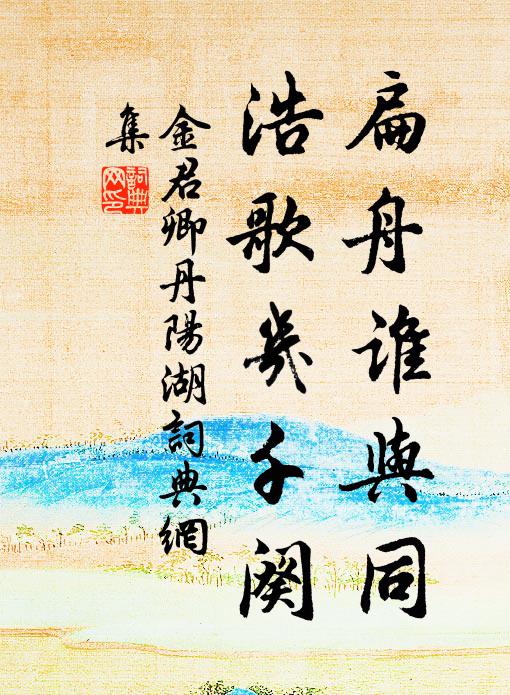 扁舟誰與同
浩歌幾千闋
金君卿丹陽湖詞典網
集
詞典
网印